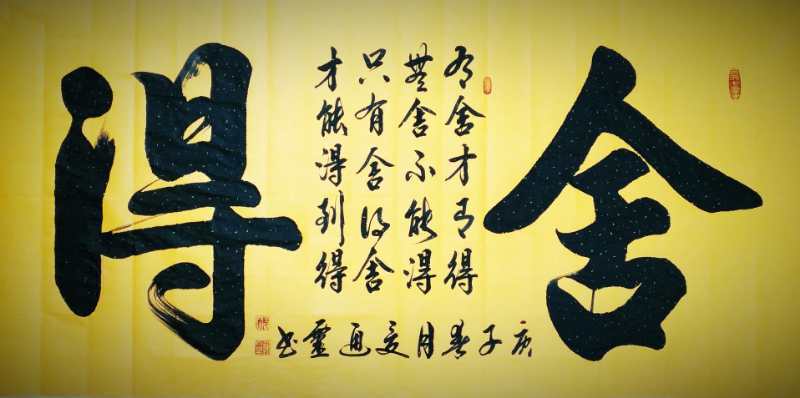 舍
有舍才有得
無舍不能得
只有舍得舍
才能得到得
庚子春月
得